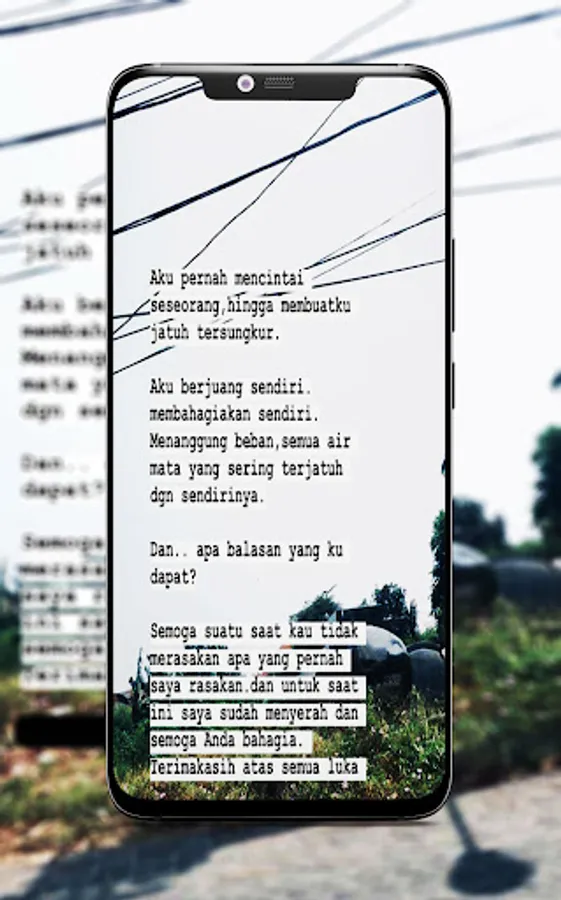 Aku pernah mencintai
seseorang,hingga membuatku
jatuh tersungkur.
Aku berjuang sendiri.
membahagiakan sendiri.
Menanggung beban,semua air
mata yang sering terjatuh
dgn sendirinya.
Dan.. apa balasan yang ku
dapat?
Semoga suatu saat kau tidak
merasakan apa yang pernah
saya rasakan.dan untuk saat
ini saya sudah menyerah dan
semoga Anda bahagia.
Terimakasih atas semua luka